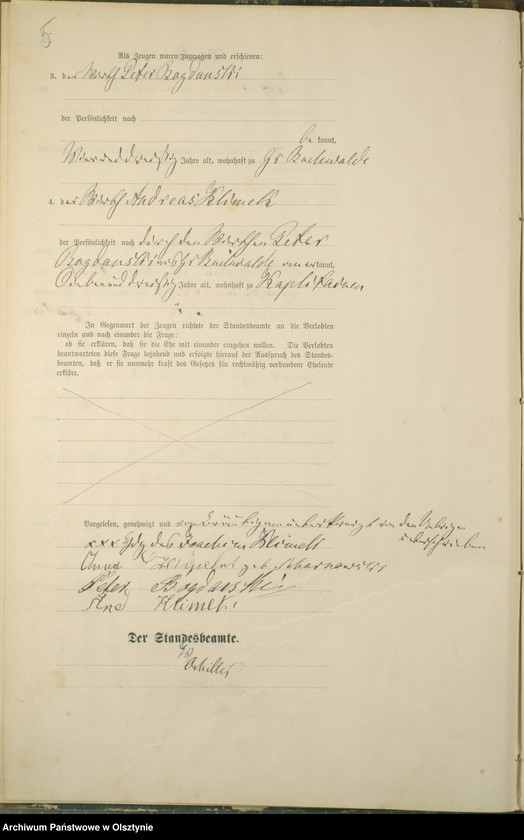 Als Zeugen waren zugezogen und erschienen:
3. der Wirth Peter Bogdanski
der Persönlichkeit nach
be kannt,
Vierunddreißig Jahre alt, wohnhaft zu Gr Buchwalde
4. der Wirth Andreas Klimek
der Persönlichkeit nach durch den Wirthen Peter
Bogdanski aus Gr Buchwalde anerkannt,
Siebenunddreißig Jahre alt, wohnhaft zu
In Gegenwart der Zeugen richtete der Standesbeamte an die Verlobten
einzeln und nach einander die Frage:
ob sie erklären, daß sie die Ehe mit einander eingehen wollen. Die Verlobten
beantworteten diese Frage bejahend und erfolgte hierauf der Ausspruch des Standes-
beamten, daß er sie nunmehr kraft des Gesetzes für rechtmäßig verbundene Eheleute
erkläre.
Vorgelesen, genehmigt und vom Bräutigam unterkreuzt von den Uebrigen
unterschrieben
xxx Hdz des Joachim Klimek
Anna Klimek geb
Peter Bogdanski
And Klimek
Der Standesbeamte.
Schiller
Archiwum Państwowe w Olsztynie